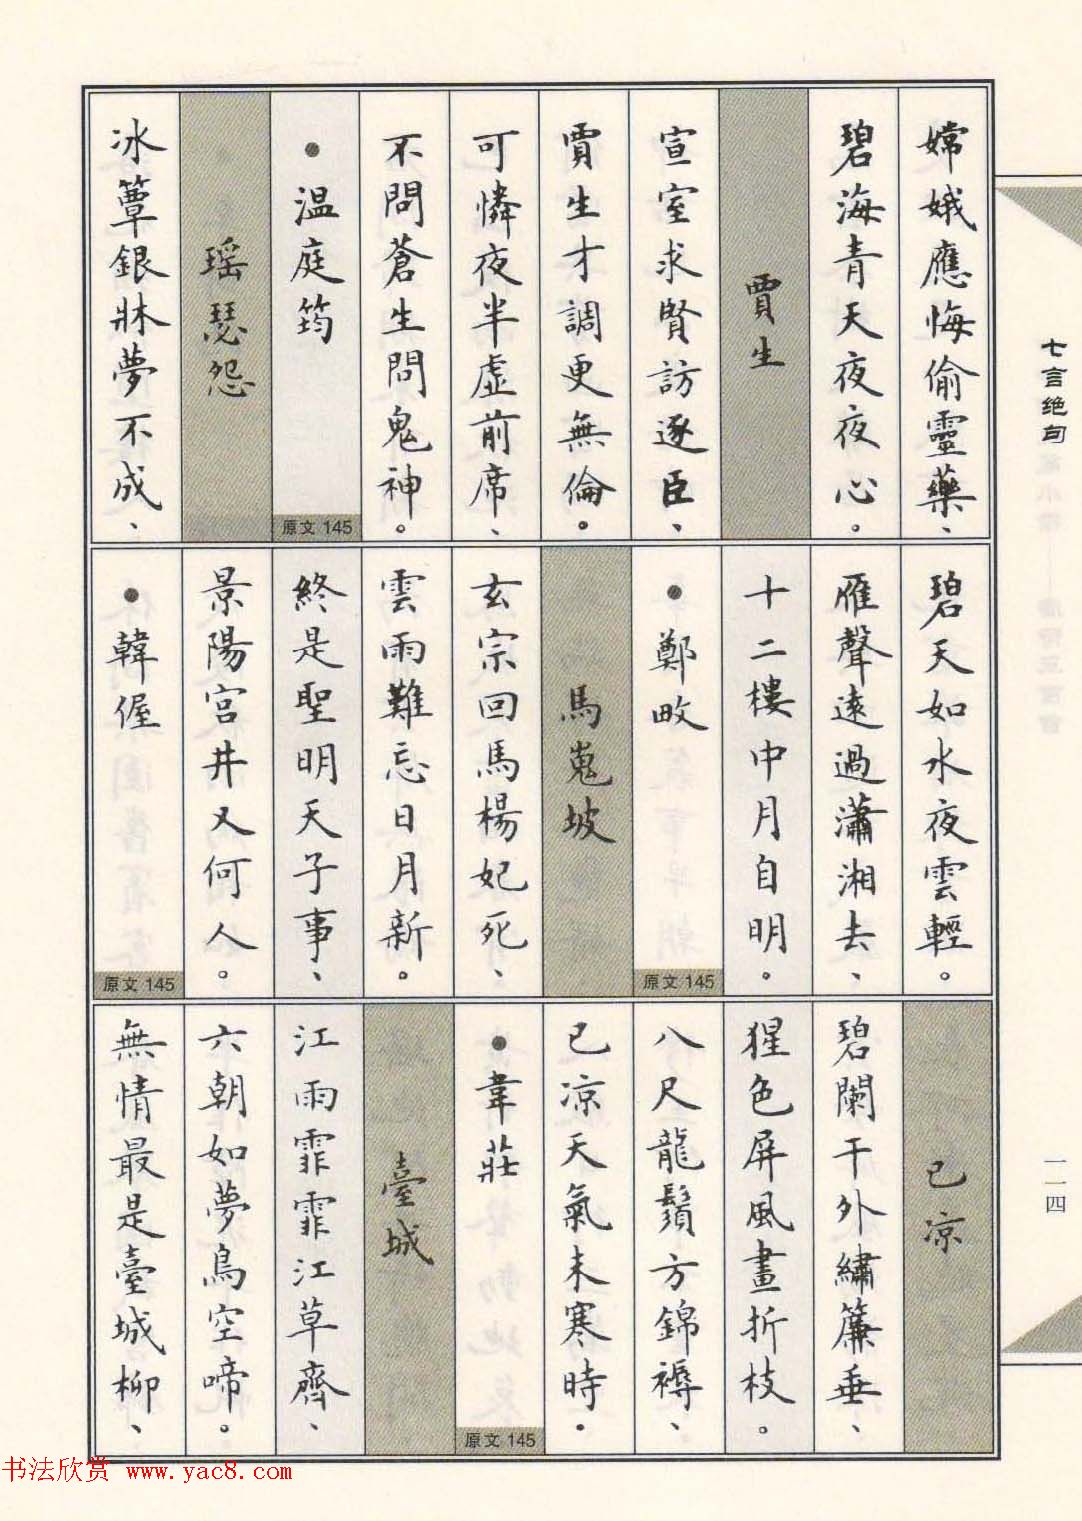 嫦娥應悔偷靈藥、
碧海青天夜夜心。
賈生
宣室求賢訪逐臣、
賈生才調更無倫。
可憐夜半虛前席、
不問蒼生問鬼神。
●溫庭筠
原文 145
瑶瑟怨
冰簟銀牀夢不成、
碧天如水夜雲輕。
雁聲遠過瀟湘去、
十二樓中月自明。
●鄭畋
原文 145
馬嵬坡
玄宗回馬楊妃死、
雲雨難忘日月新。
終是聖明天子事、
景陽宮井又何人。
●韓偓
原文 145
已凉
碧闌干外繡簾垂、
猩色屏風畫折枝。
八尺龍鬚方錦褥、
已凉天氣未寒時。
●韋莊
原文 145
臺城
江雨霏霏江草齊、
六朝如夢鳥空啼。
無情最是臺城柳、
七言绝句
一一四
书法欣赏 www.yac8.com